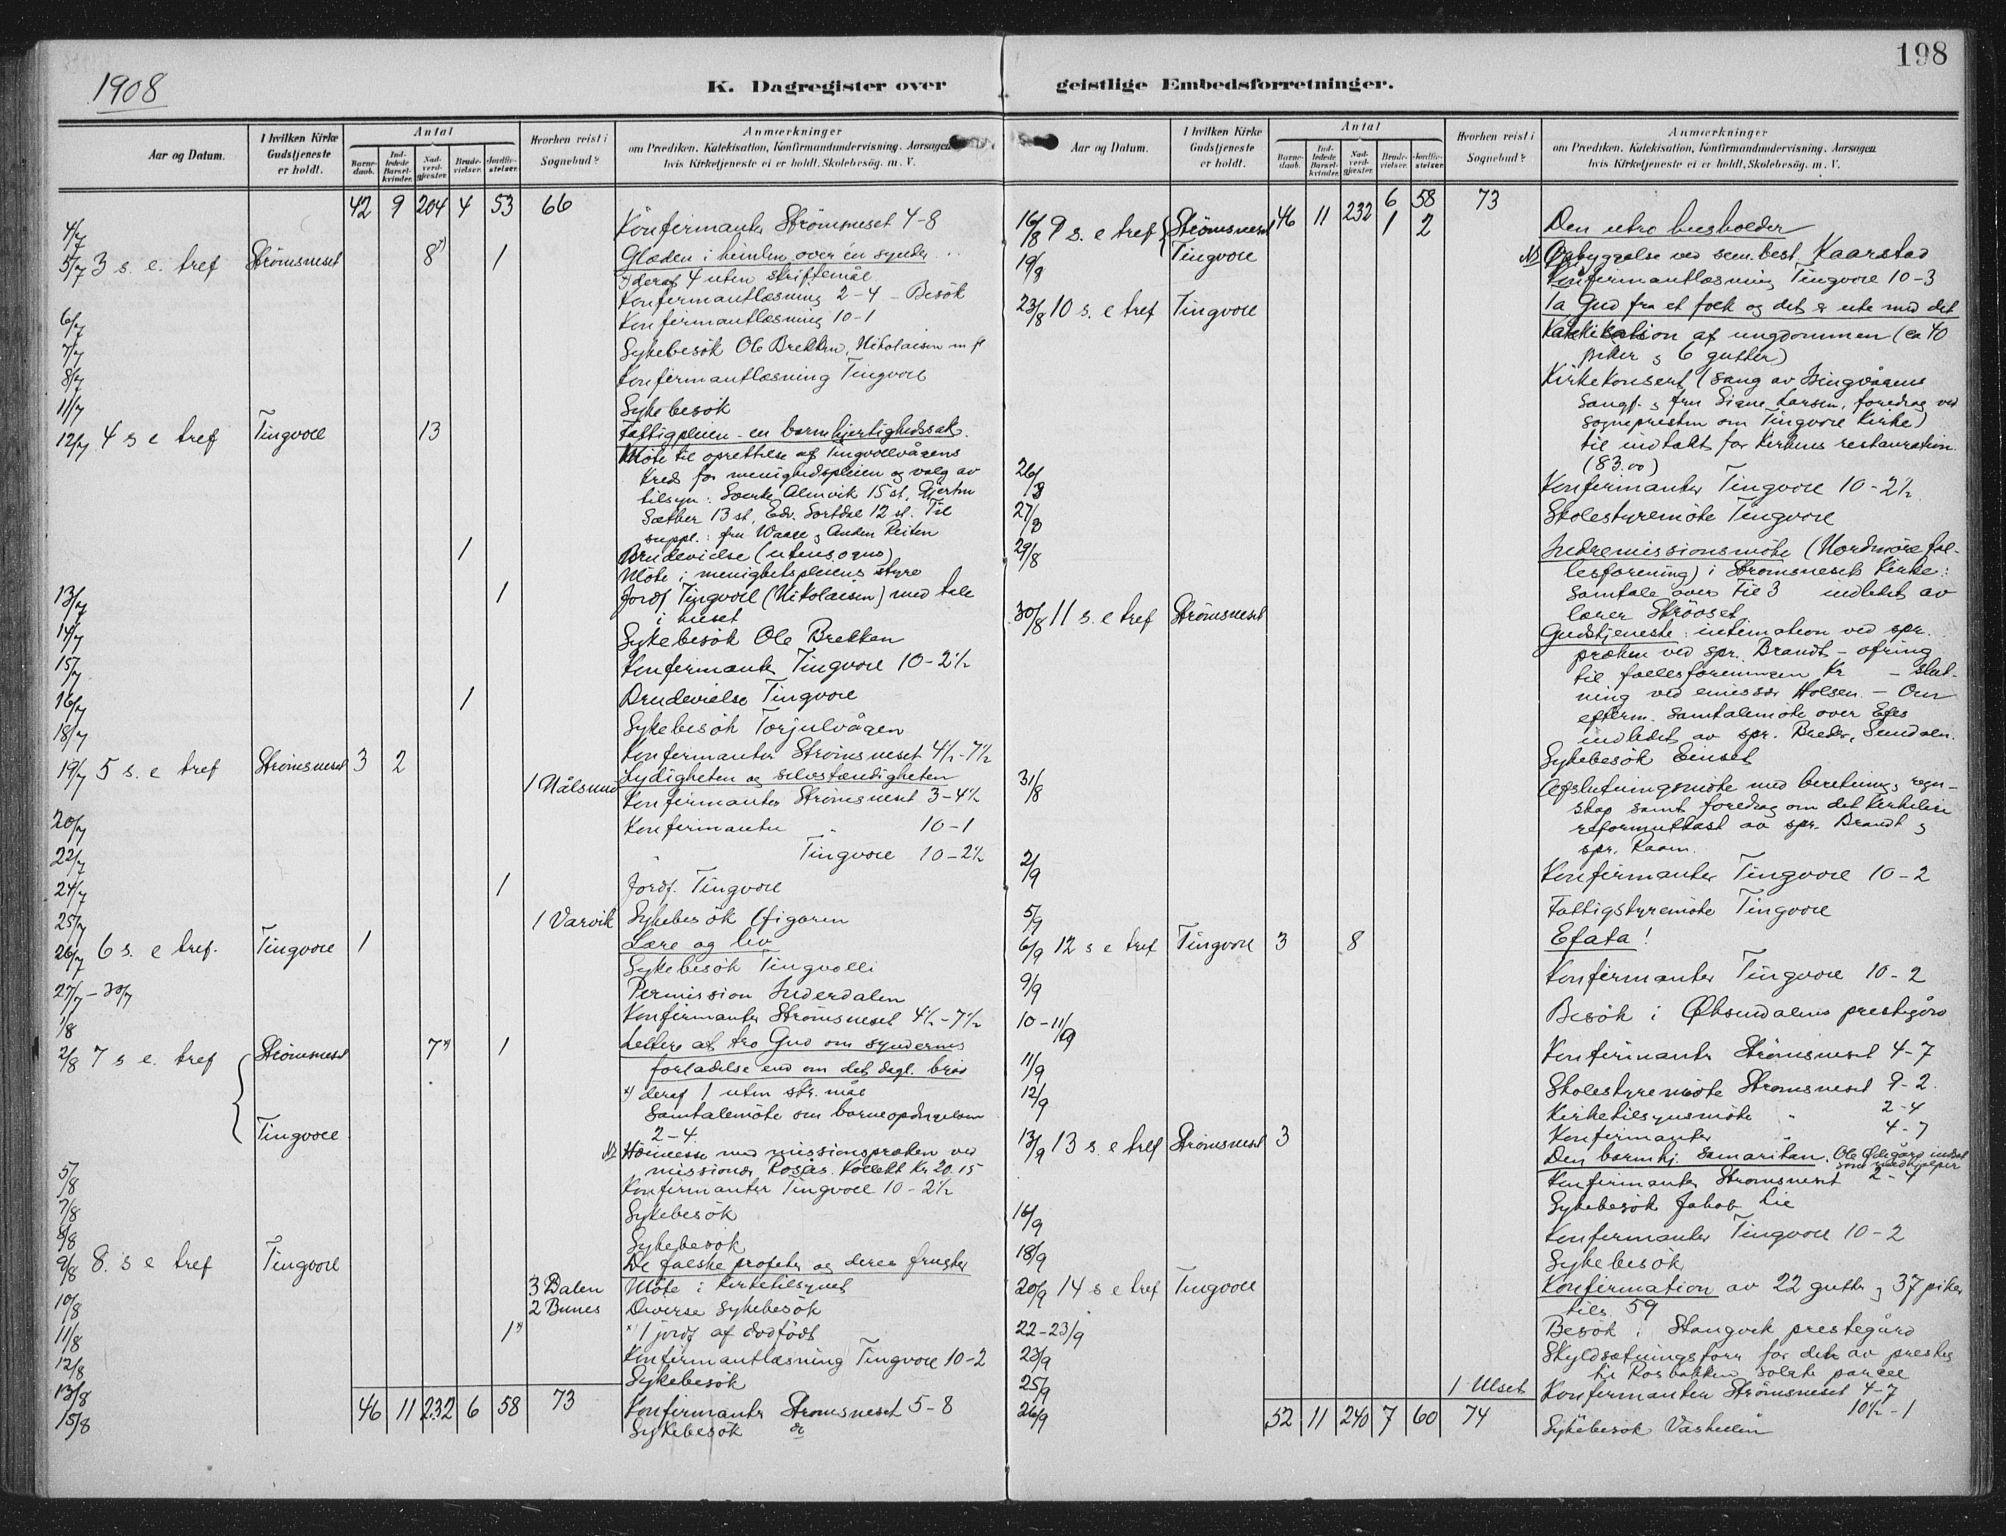 1908
198
K. Dagregister over
geistlige Embedsforretninger.
Aar og Datum.
I hvilken Kirke Gudstjeneste er holdt.
Antal
Barne-daab.
Ind-ledede Barsel-kvinder.
Nad-verd-gjæster.
Brude-vielser.
Jordfæ-stelser.
Hvorhen reist i Sognebud?
Anmærkninger
om Prædiken. Katekisation, Konfirmandundervisning. Aarsagen
hvis Kirketjeneste ei er holdt. Skolebesøg. m. V.
42 9 204 4 53 66
4/7 Konfirmanter Strømsneset 4-8
5/7 3 s. e. tref Strømsneset 8 x) 1 Glæden i himlen over én synder
x) deraf 4 uten skriftemål
Konfirmantlæsning 2-4 - Besøk
6/7 Konfirmantlæsning 10-1
7/7 Sykebesøk Ole Brekken, Nikolaisen m fl
8/7 Konfirmantlæsning Tingvoll
11/7 Sykebesøk
12/7 4 s e tref Tingvoll 13 Fattigpleien - en barmhjertighedssak.
Møte til oprettelse af Tingvollvågens
Kreds for menighedspleien og valg av
tilsyn: Almvik 15 st, Gjertru
Sæther 13 st, Edv. 12 st. Til
suppl.: fru Waase og Reiten
1 Brudevielse (utensogns)
Møte i menighetspleiens styre
13/7 1 Jordf Tingvoll (Nikolaisen) med tale
i huset
14/7 Sykebesøk Ole Brekken
15/7 Konfirmanter Tingvoll 10-2½
16/7 1 Brudevielse Tingvoll
18/7 Sykebesøk Torjulvågen
Konfirmanter Strømsneset 4½-7½
19/7 5 s. e tref Strømsneset 3 2 Lydigheten og selvstændigheten
1 Nålsund Konfirmanter Strømsneset 3-4½
20/7 Konfirmanter " 10-1
22/7 " Tingvoll 10-2½
24/7 1 Jordf. Tingvoll
25/7 1 Varvik Sykebesøk
26/7 6 s. e tref. Tingvoll 1 Lære og liv
Sykebesøk Tingvoll
27/7 - 30/7 Permission Inderdalen
1/8 Konfirmanter Strømsneset 4½-7½
2/8 7 s e. tref Strømsneset 7 x) 1 Lettere at tro Gud om syndernes
forladelse end om det dagl. brød
x) deraf 1 uten skr. mål
Samtalemøte om barneopdragelsen
2-4.
Tingvoll Høimesse med missionspræken ved
missionær Rosås. Kollekt Kr 20.15
5/8 Konfirmanter Tingvoll 10-2½
7/8 Sykebesøk
8/8 Sykebesøk
9/8 8. s e tref Tingvoll De falske profeter og deres frugter
3 Dalen Møte i kirketilsynet
10/8 2 Bunes Diverse sykebesøk
11/8 1 x) x) 1 jordf af dødfødt
12/8 Konfirmantlæsning Tingvoll 10-2
13/8 Sykebesøk
46 11 232 6 58 73 Konfirmanter Strømsneset 5-8
15/8 Sykebesøk
Aar og Datum.
I hvilken Kirke Gudstjeneste er holdt.
Antal
Barne-daab.
Ind-ledede Barsel-kvinder.
Nad-verd-gjæster.
Brude-vielser.
Jordfæ-stelser.
Hvorhen reist i Sognebud?
Anmærkninger
om Prædiken. Katekisation, Konfirmandundervisning. Aarsagen
hvis Kirketjeneste ei er holdt. Skolebesøg. m. V.
46 11 232 6 58 73
16/8 9 s. e tref Strømsneset 1 2 Den utro husholder
Tingvoll Opbyggelse ved sem. best. Kaarstad
19/8 Konfirmantlæsning Tingvoll 10-3
23/8 10 s. e tref Tingvoll Ta Gud fra et folk og det er ute med det
Katekisation af ungdommen (ca 40
piker og 6 gutter)
Kirkekonsert (sang av Tingvågens
sangf. og fru Signe Larsen, foredrag ved
sognepresten om Tingvoll Kirke)
til indtækt for Kirkens restauration.
(83.00)
26/8 Konfirmanter Tingvoll 10-2½
27/8 Skolestyremøte Tingvoll
29/8 Indremissionsmøte (Nordmøre fæl-
lesforening) i Strømsnesets Kirke:
Samtale over 3 indledet av
lærer
30/8 11 s. e tref Strømsneset Gudstjeneste: intimation ved spr.
præken ved spr. Brandt - ofring
til fællesforeningen Kr - slut-
ning ved emissær Holsen - Om
efterm. samtalemøte over Efes
indledet av spr. Sundalen.
Sykebesøk Einset
31/8 Afslutningsmøte med beretning, regn-
skap samt foredrag om det kirkelige
reformutkast av spr. Brandt og
spr. Kaarn.
2/9 Konfirmanter Tingvoll 10-2
5/9 Fattigstyremøte Tingvoll
6/9 12 s e tref Tingvoll 3 8 Efata!
9/9 Konfirmanter Tingvoll 10-2
10-11/9 Besøk i Øksendalens prestegård
11/9 Konfirmanter Strømsneset 4-7
12/9 Skolestyremøte Strømsneset 9-2.
Kirketilsynsmøte " 2-4
Konfirmanter " 4-7
13/9 13 s. e tref Strømsneset 3 Den barmhj. samaritan. Ole Ødegård indsat
som medhjælper
Konfirmanter Strømsneset 2-4
16/9 Sykebesøk Jakob Lie
Konfirmanter Tingvoll 10-2
18/9 Sykebesøk
20/9 14 s e tref Tingvoll Konfirmation av 22 gutter og 37 piker
tils. 59
22-23/9 Besøk i Stangvik prestegård
23/9 Skyldsætningsforr for det av presteg
til Rosbakken solgte parcel
25/9 1 Ulset Konfirmanter Strømsneset 4-7
10½-1
26/9 52 11 240 7 60 74 Sykebesøk